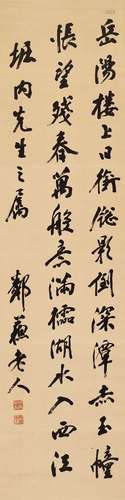 岳陽樓上日銜窓影倒深潭赤玉幢
悵望殘春萬般意滿櫺湖水入西江
堀内先生之属
鄰蘇老人